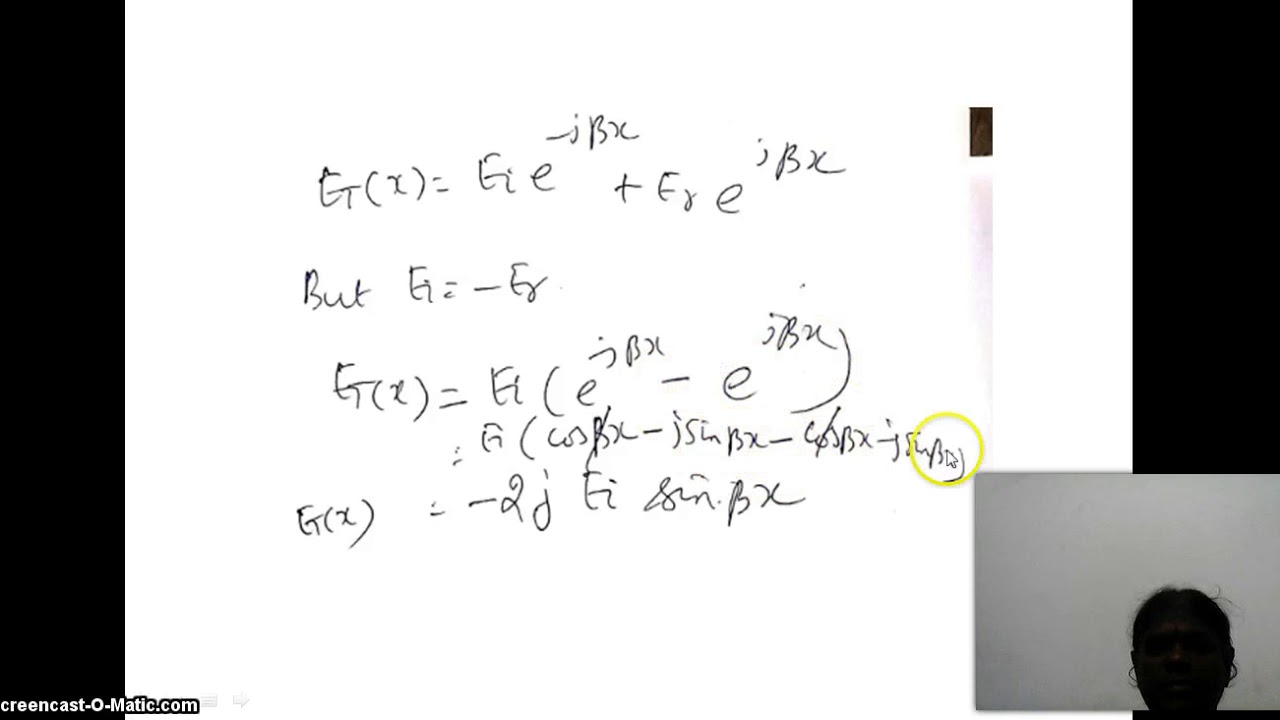 E_T(x) = E_i e^{-jβx} + E_r e^{jβx}
But E_i = -E_r
E_T(x) = E_i (e^{jβx} - e^{jβx})
= E_i (cosβx - jsinβx - cosβx - jsinβx)
E_T(x) = -2j E_i sin βx
creencast-O-Matic.com